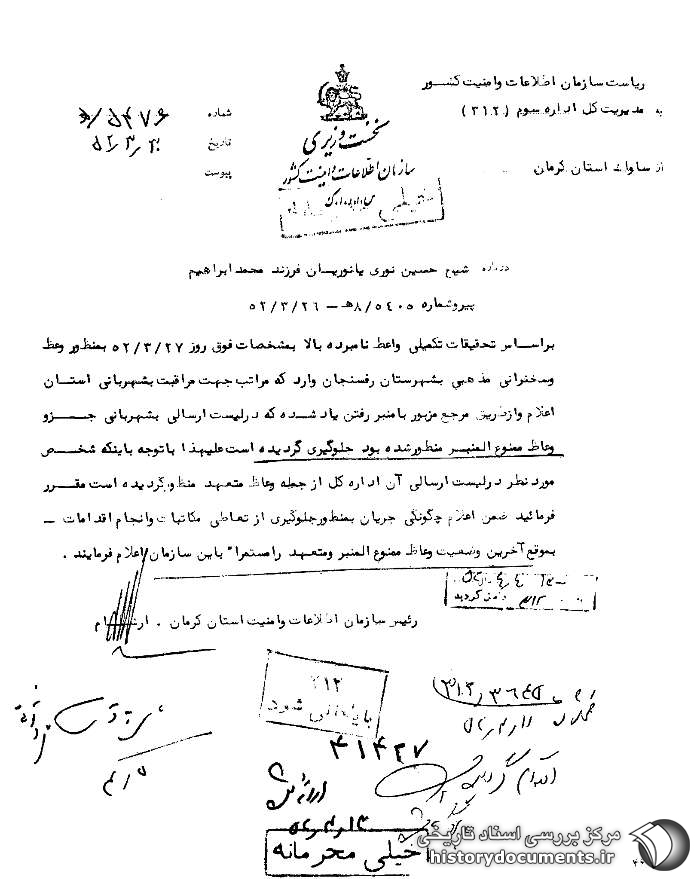 ریاست سازمان اطلاعات وامنیت کشور
به مدیریت کل اداره سوم (۳۱۲)
از ساواک استان کرمان
نخست وزیری
سازمان اطلاعات و امنیت کشور
س.ا.و.ا.ک
خیلی
شماره ۵۴۷۶/ه
تاریخ
پیوست
درباره شیخ حسین نوری یا نوریان فرزند محمد ابراهیم
پیرو شماره ۸/۵۴۰۵ه‍ – ۵۲/۳/۲۶
براساس تحقیقات تکمیلی واعظ نامبرده بالا بمشخصات فوق روز ۵۲/۳/۲۷ بمنظور وعظ
وسخنرانی مذهبی بشهرستان رفسنجان وارد که مراتب جهت مراقبت بشهربانی استان
اعلام وازطریق مرجع مزبور با منبر رفتن یاد شده که درلیست ارسالی بشهربانی جزو
وعاظ ممنوع المنبر منظور شده بود جلوگیری گردیده است علیهذا با توجه باینکه شخص
مورد نظر درلیست ارسالی آن اداره کل از جمله وعاظ متعهد منظور گردیده است مقرر
فرمائید ضمن اعلام چگونگی جریان بمنظور جلوگیری از تعاطی مکاتبات وانجام اقدامات –
بموقع آخرین وضعیت وعاظ ممنوع المنبر ومتعهد را مستمرا" باین سازمان اعلام فرمایند .
رئیس سازمان اطلاعات وامنیت استان کرمان .
۳۱۲
بایگانی شود
۴۱۴۲۷
اقدام گردید
خیلی محرمانه
مرکز بررسی اسناد تاریخی
historydocuments.ir